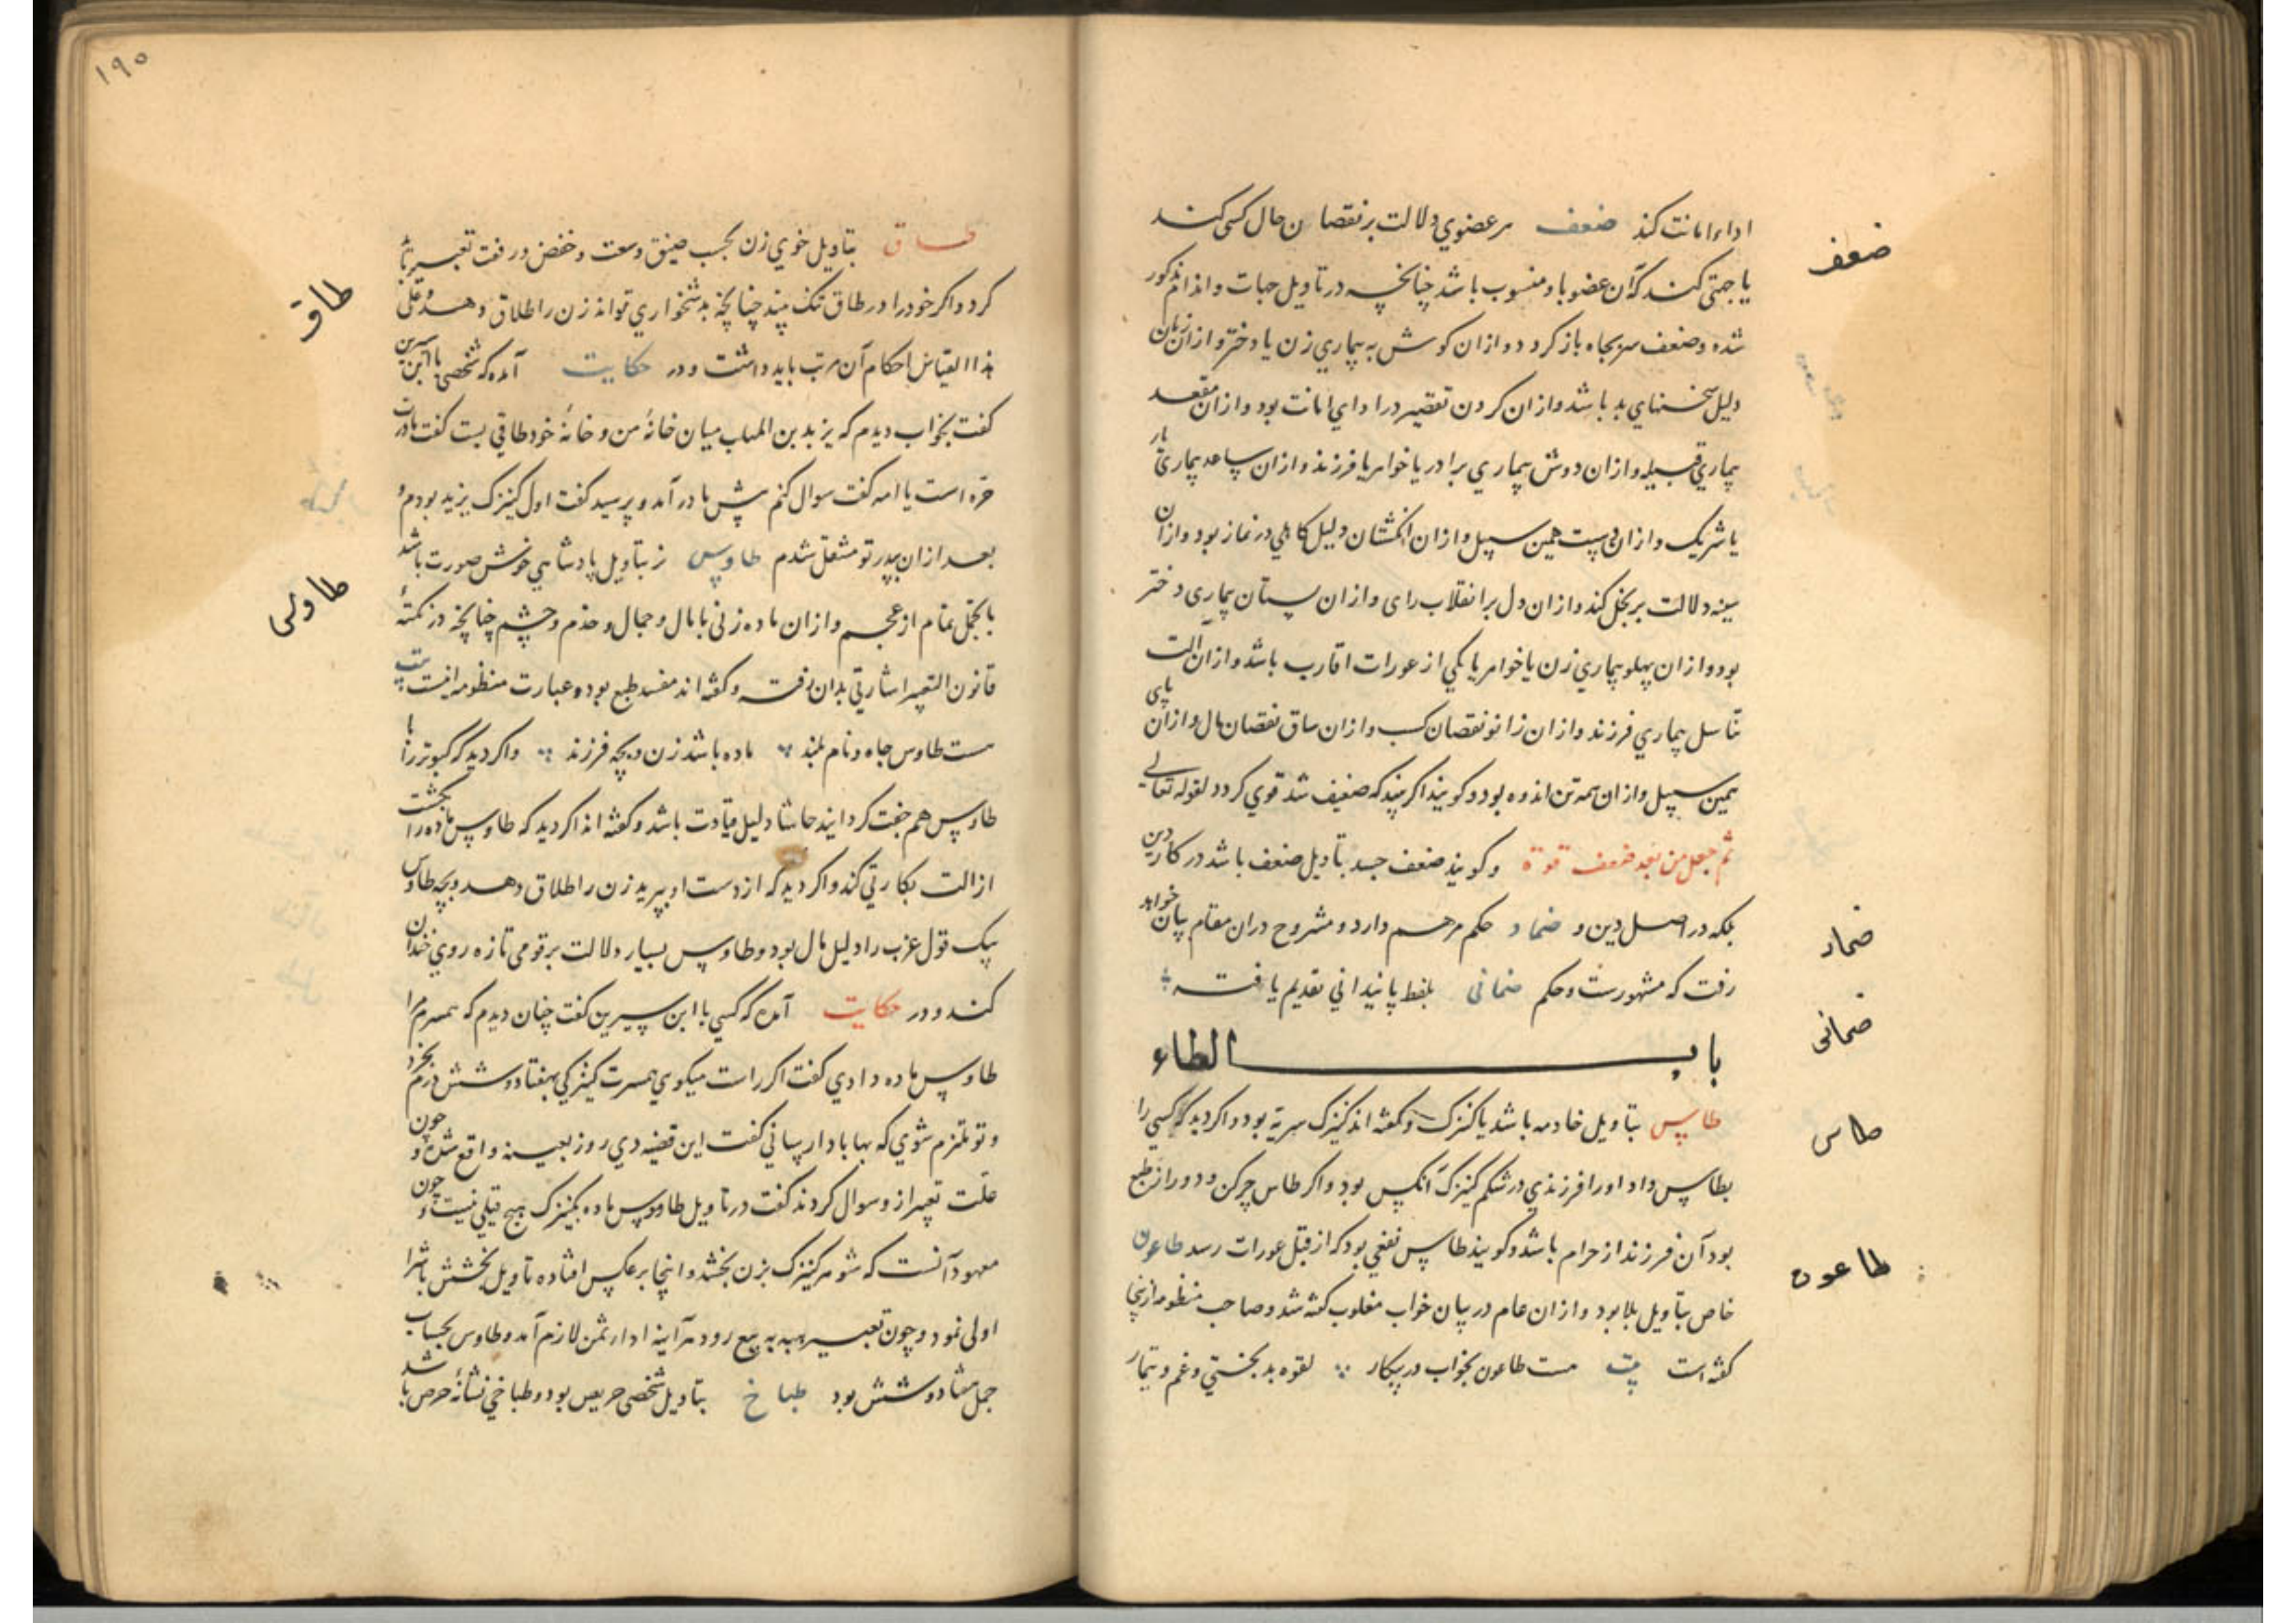 اداء امانت کند ضعف هر عضوی دلالت بر نقصان حال کسی کند
یا جهتی کند که آن عضو باو منسوب باشد چنانچه در تاویل حیات و اندام مذکور
شده وضعف سر بجاه باز کردد وازان کوش به بیماری زن یا دختر وازان زبان
دلیل سخنهای بد باشد وازان کردن تقصیر در ادای امانت بود وازان مقعد
بیماری قبیله وازان دوش بیماری برادر یا خواهر یا فرزند وازان ساعد بیماری یار
یا شریک وازان دست همین سبیل وازان انکشتان دلیل کاهلی در نماز بود وازان
سینه دلالت بر بخل کند وازان دل بر انقلاب رای وازان پستان بیماری دختر
بود وازان پهلو بیماری زن یا خواهر یا یکی از عورات اقارب باشد وازان الت
تناسل بیماری فرزند وازان زانو نقصان کسب وازان ساق نقصان مال وازان پای
همین سبیل وازان همه تن اندوه بود وکویند اکر بیند که ضعیف شد قوی کردد لقوله تعالی
ثم جعل من بعد ضعف قوة وکویند ضعف جسد بتاویل ضعف باشد در کار دین
بلکه در اصل دین و ضماد حکم مرهم دارد و مشروح دران مقام بیان خواهد
رفت که مشهورست وحکم ضمانی بلفظ پایندانی تقدیم یافته
باب الطاء
طاس بتاویل خادمه باشد یا کنیزک وکفته اند کنیزک سریة بود واکر دید که کسی را
بطاس داد اورا فرزندی در شکم کنیزک آنکس بود واکر طاس چرکن ودور از طبع
بود آن فرزند از حرام باشد وکویند طاس نفعی بود که از قبل عورات رسد طاعون
خاص بتاویل بلا بود وازان عام در بیان خواب مغلوب کفته شد وصاحب منظومه ازینجا
کفته است بیت هست طاعون بخواب در پیکار لقوه بدبختی وغم وتیمار
ضعف
ضماد
ضمانی
طاس
طاعون
۱۹۵
طاق بتاویل خوی زن بحسب ضیق وسعت وخفض ورفعت تعبیر باید
کرد واکر خودرا در طاق تنک بیند چنانچه بدشخواری تواند زن را طلاق دهد وعلی
هذا القیاس احکام آن مرتب باید داشت و در حکایت آمده که شخصی با ابن سیرین
کفت بخواب دیدم که یزید بن المهلب میان خانهٔ من وخانهٔ خود طاقی بست کفت مادرت
حره است یا امه کفت سوال کنم پیش مادر آمد و پرسید کفت اول کنیزک یزید بودم و
بعد ازان بپدر تو منتقل شدم طاوس نر بتاویل پادشاهی خوش صورت باشد
با تجمل تمام از عجم وازان ماده زنی با مال وجمال وخدم وحشم چنانچه در نکتهٔ
قانون التعبیر اشارتی بدان رفت وکفته اند مفسد طبع بود وعبارت منظومه اینست بیت
هست طاوس جاه ونام بلند ماده باشد زن و بچه فرزند واکر دید که کبوتر را با
طاوس هم جفت کردانید حاشا دلیل قیادت باشد وکفته اند اکر دید که طاوس ماده را بکشت
ازالت بکارتی کند واکر دید که از دست او بپرید زن را طلاق دهد وبچه طاوس
بیک قول عزب را دلیل مال بود وطاوس بسیار دلالت بر قومی تازه روی خندان
کند ودر حکایت آمده که کسی با ابن سیرین کفت چنان دیدم که همسرم را
طاوس ماده دادی کفت اکر راست میکوی همسرت کنیزکی بهفتاد وشش درم بخرد
وتو ملتزم شوی که بها بادا رسانی کفت این قضیه دی روز بعینه واقع شده و چون
علت تعبیر ازو سوال کردند کفت در تاویل طاووس ماده بکنیزک هیچ قیلی نیست و چون
معهود آنست که شوهر کنیزک بزن بخشد واینجا برعکس افتاده تاویل بخشش با شرا
اولی نمود وچون تعبیر هبه به بیع رود هر آینه اداء ثمن لازم آمد وطاوس بحساب
جمل هفتاد وشش بود طباخ بتاویل شخصی حریص بود وطباخی نشانهٔ حرص باشد
طاق
طاوس